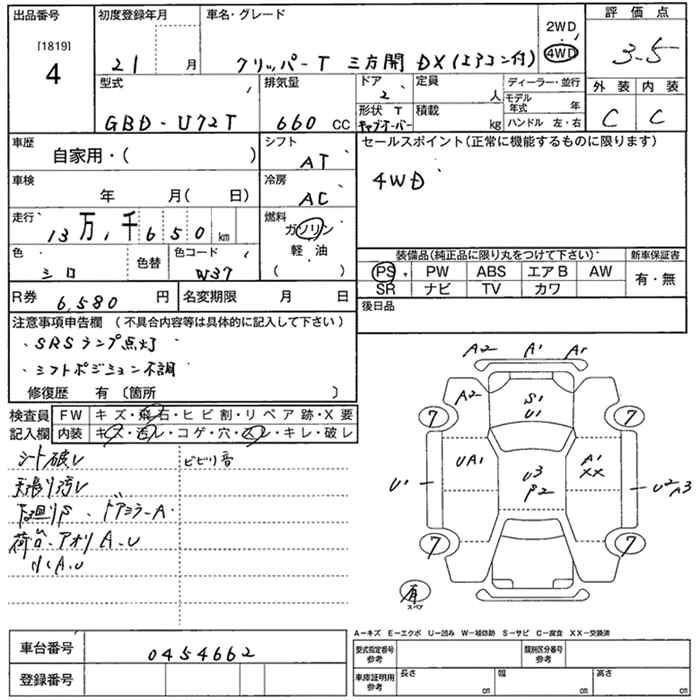 出品番号 初度登録年月 車名・グレード 2WD 評価点
[1819] 4WD
4 21 月 クリッパーT 三方開 DX(エアコン付) 3.5
型式 排気量 ドア 定員 ディーラー・並行 外装 内装
2 人 モデル年式 年
GBD-U72T 660 CC 形状 T キャブオーバー 積載 kg ハンドル 左・右 C C
車歴 シフト セールスポイント(正常に機能するものに限ります)
自家用・( ) AT
車検 冷房 4WD
年 月( 日) AC
走行 燃料
13万,千650 km ガソリン
色 色替 色コード 軽油 装備品(純正品に限り丸をつけて下さい) 新車保証書
シロ W37 ( ) PS PW ABS エアB AW 有・無
R券 6,580 円 名変期限 月 日 SR ナビ TV カワ
注意事項申告欄 (不具合内容等は具体的に記入して下さい) 後日品
・SRSランプ点灯
・シフトポジション不調
修復歴 有 〔箇所 〕
検査員 FW キズ・飛石・ヒビ割・リペア跡・X要
記入欄 内装 キズ・汚レ・コゲ・穴・スレ・キレ・破レ
シート破レ ビビリ音
天張り汚レ
下廻りS、ドアミラーA
荷台、アオリA、U
小A、U
A2 A1 A1
A2 S1 U1
7 7
UA1 A1 XX
U1 U3 S2 U2 A3
7 7
有
スペア
A-キズ E-エクボ U-凹み W-補修跡 S-サビ C-腐食 XX-交換済
車台番号 0454662 型式指定番号 参考 類別区分番号 参考
登録番号 車庫証明用 参考 長さ cm 幅 cm 高さ cm